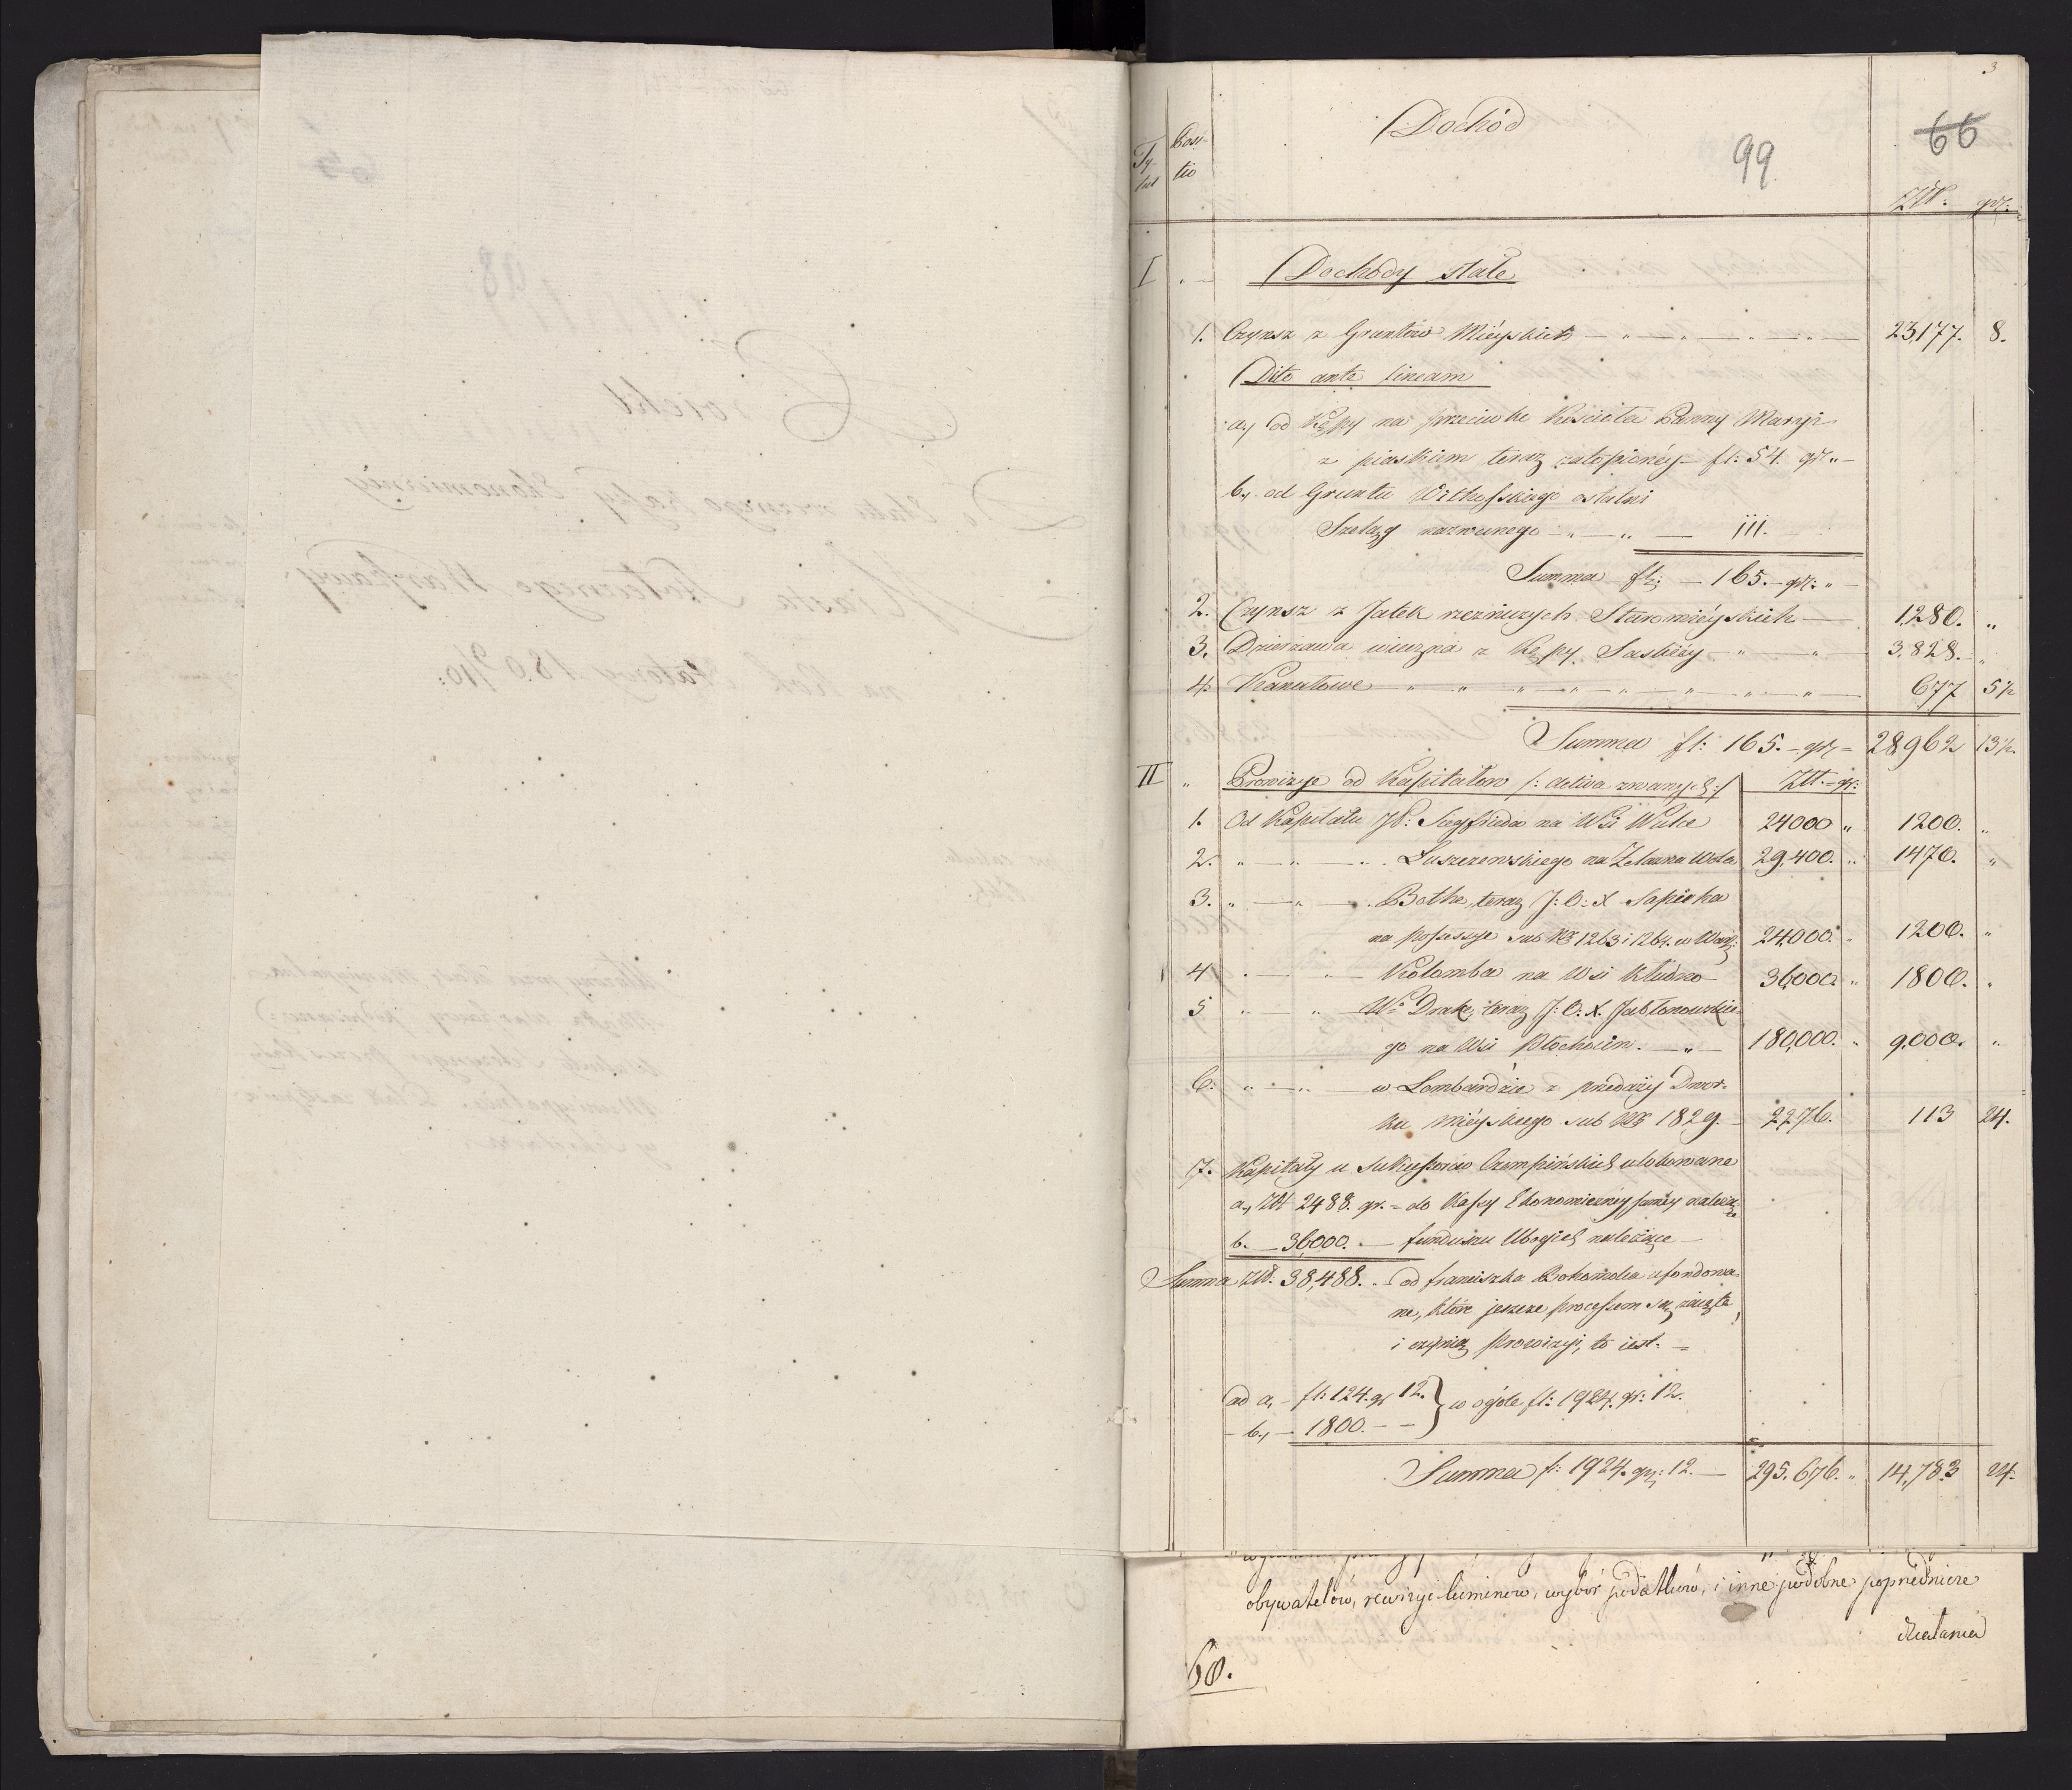 3
Dochód
99
66
Ty-
tuł
Posi-
tio
Złt. gr:
I Dochody stałe
1. Czynsz z Gruntów Mieyskich 23,177. 8.
Dito ante lineam
a, od Kępy na przeciwko Kościoła Panny Maryi
z piaskiem teraz zatopioney fl: 54. gr „
b, od Gruntu Witthoffskiego ostatni
Szeląg nazwanego 111.
Summa fl: 165. gr: „
2. Czynsz z Jatek rzeźniczych Staromieyskich 1,280. „
3. Dzierzawa wieczna z Kępy Saskiey 3,828. „
4. Kanutowe 677 5½
Summa fl: 165. gr = 28962 13½.
II „ Prowizye od Kapitałow /: activa zwanych :/ Złt. gr:
1. Od Kapitału JP: Siegfrieda na Wsi Wulce 24000 „ 1200. „
2. „ „ Łuszczewskiego na Żelazna Wola 29,400. „ 1470. „
3. „ „ Bothe, teraz J: O: X Sapieha
na possessye sub No 1263 i 1264. w Warsz: 24,000. „ 1200. „
4 „ „ Kolomba na Wsi Kludno 36,000. „ 1800. „
5 „ „ Wo Drake, teraz J: O: X. Jabłonowskie-
go na Wsi Płochocin. „ 180,000. „ 9,000. „
6. „ „ w Lombardzie z przedaży Dwor-
ku mieyskiego sub No 1829. 2,276. 113 24.
7. Kapitały u Sukcessorów Czempińskich ulokowane
a, Złt 2488. gr. = do Kassy Ekonomiczney należące
b. 36,000. funduszu Ubogich należące
Summa Złt. 38,488. od Franciszka Bohomolca ufondowa-
ne, które jeszcze processem są zaięte,
i czynią prowizyi, to iest. =
ad a, fl: 124. gr 12. } w ogóle fl: 1924. gr: 12.
b, 1800.
Summa fl: 1924. gr: 12. 295.676. „ 14,783 24.
obywatelów, rewizyi kuminów, wybór podatków, i inne podobne poprzednicze
działania
60.